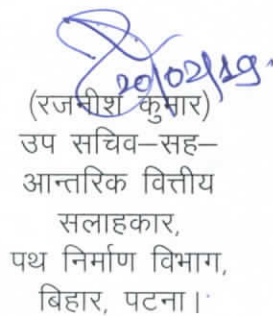 20/02/19
(रजनीश कुमार)
उप सचिव–सह–
आन्तरिक वित्तीय
सलाहकार,
पथ निर्माण विभाग,
बिहार, पटना।